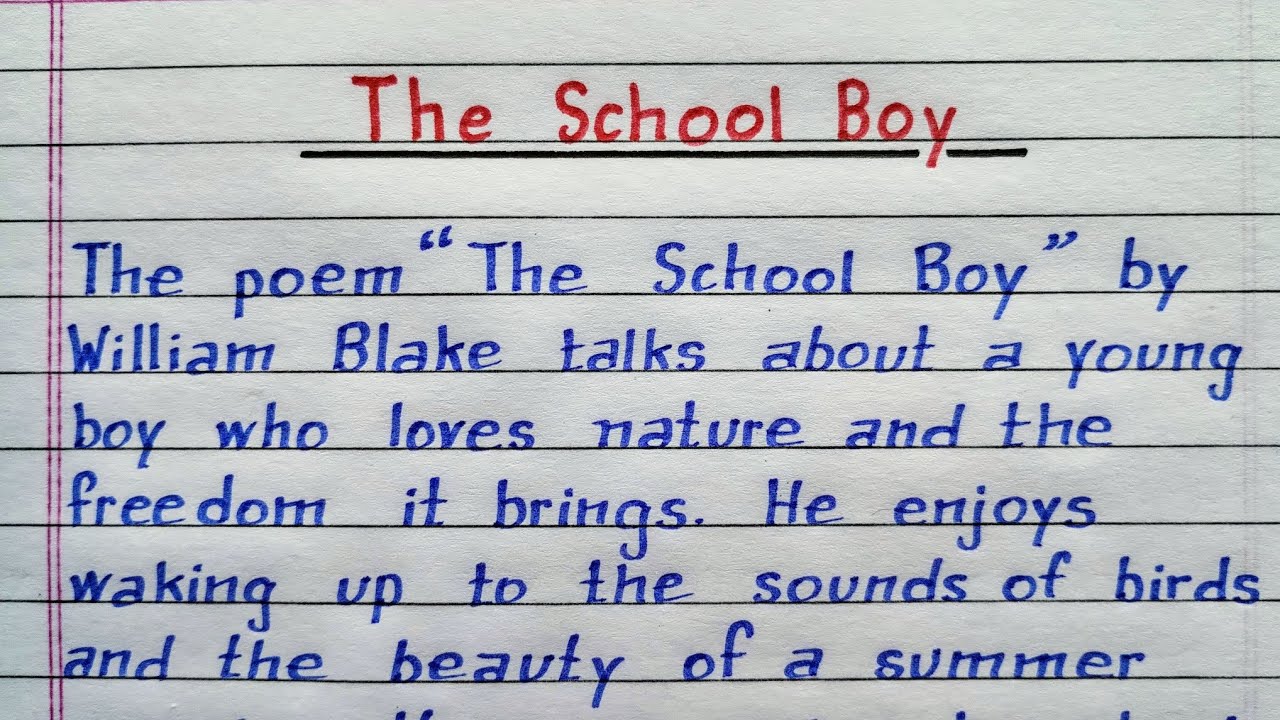 The School Boy
The poem “The School Boy” by
William Blake talks about a young
boy who loves nature and the
freedom it brings. He enjoys
waking up to the sounds of birds
and the beauty of a summer